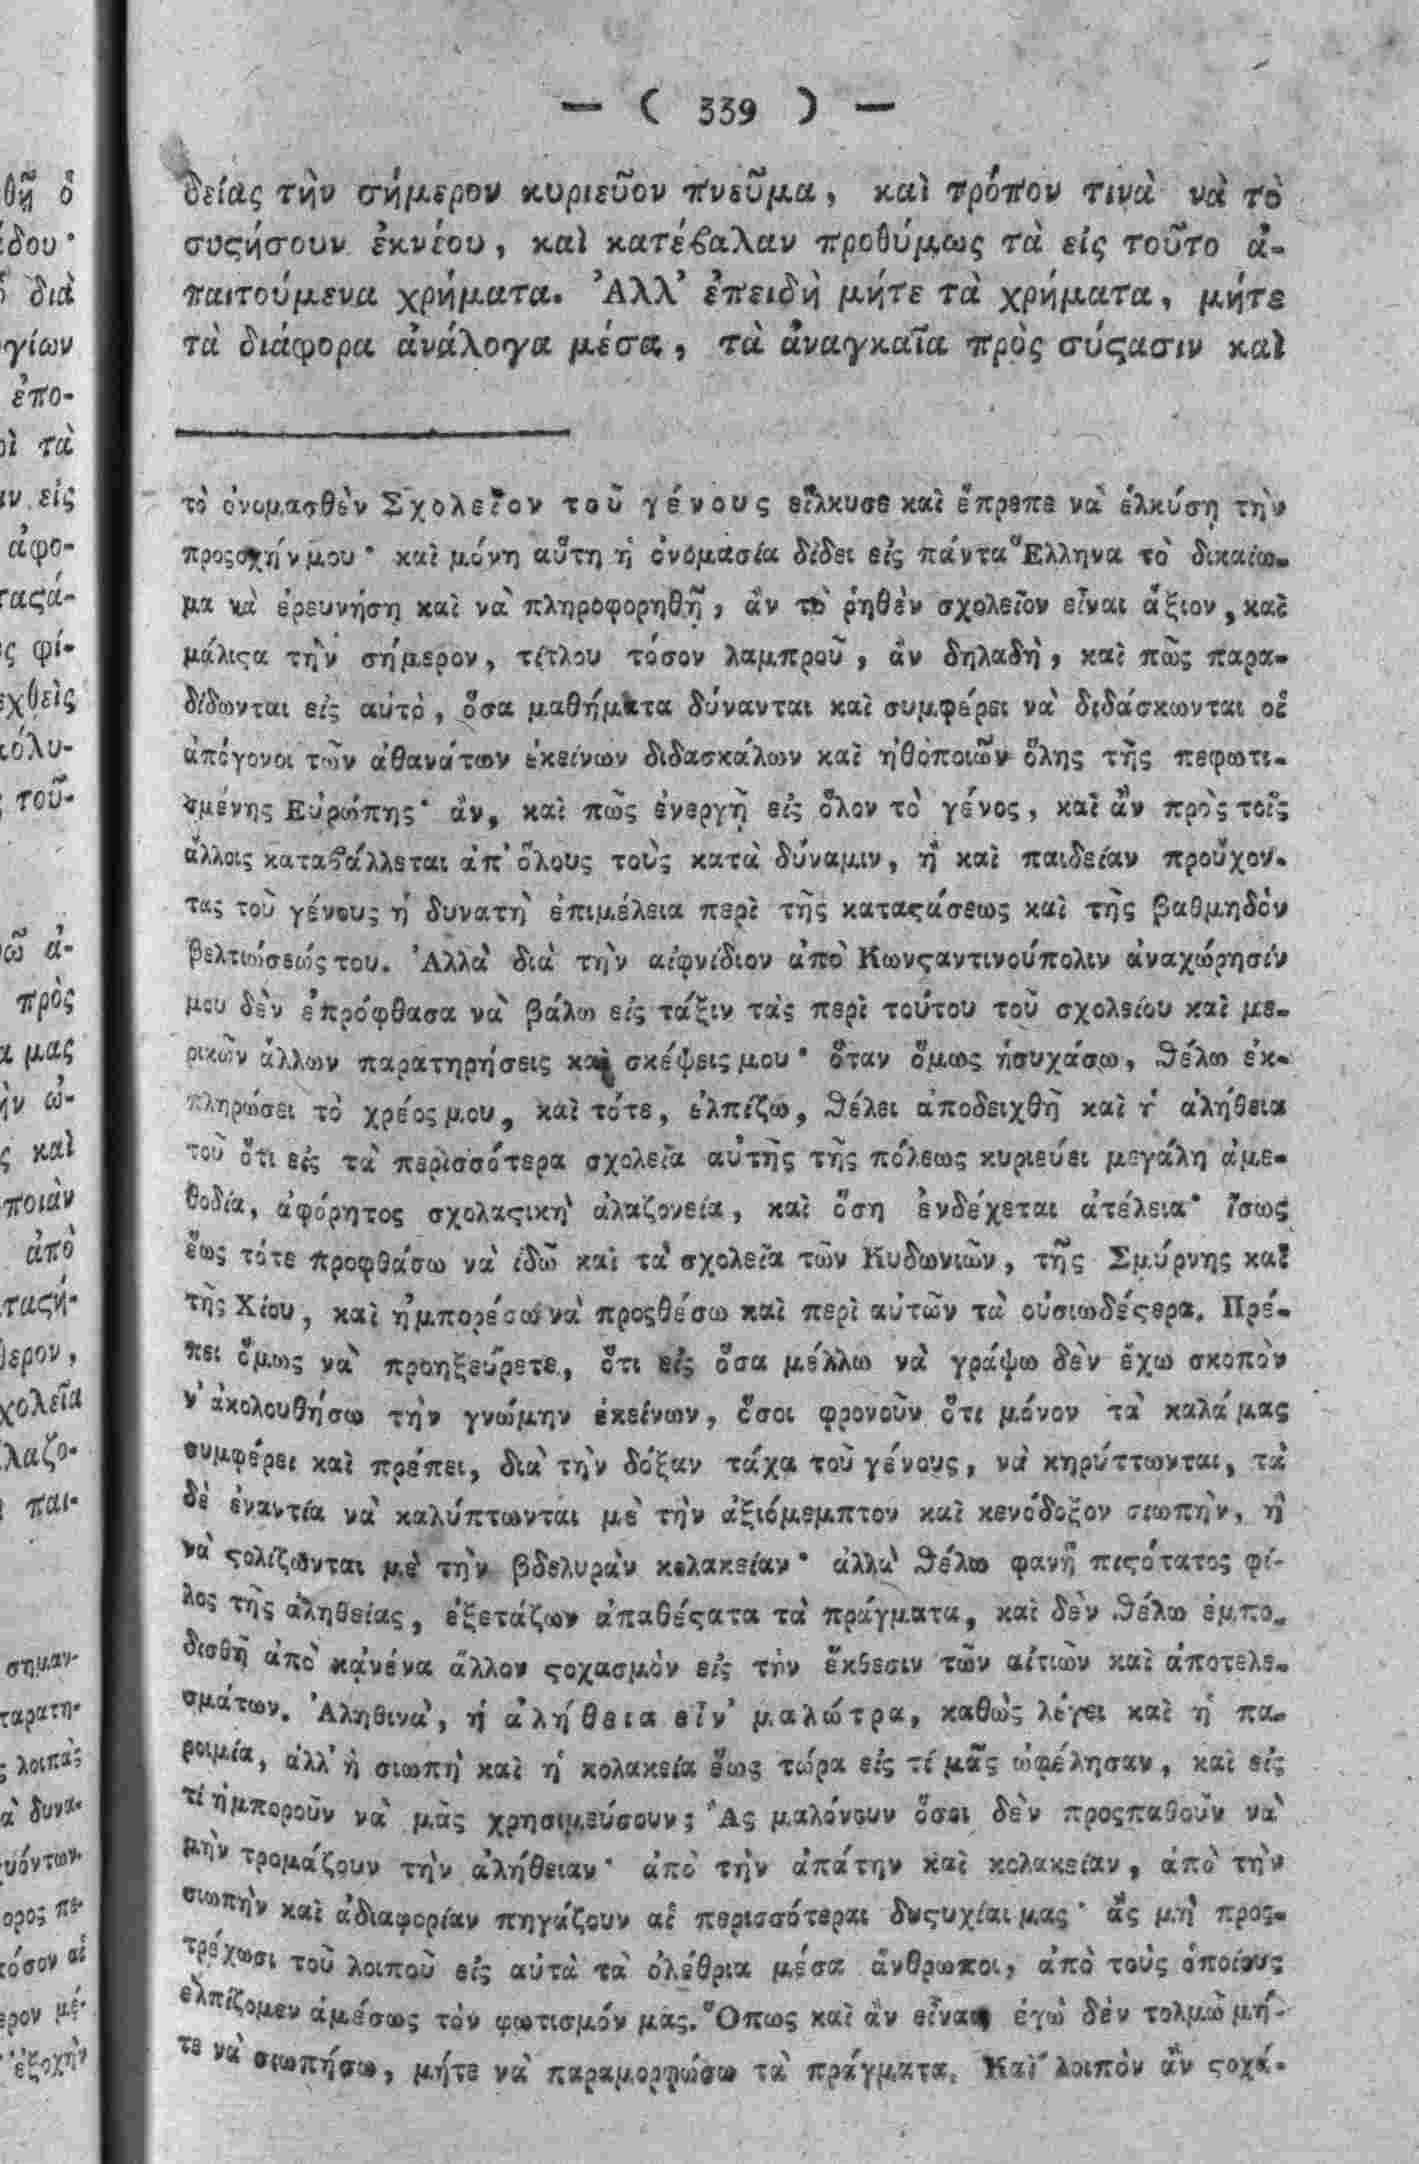 — ( 339 ) —
δείας τὴν σήμερον κυριεῦον πνεῦμα, καὶ τρόπον τινὰ νὰ τὸ
συϛήσουν ἐκνέου, καὶ κατέϐαλαν προθύμως τὰ εἰς τοῦτο ἀ-
παιτούμενα χρήματα. Ἀλλ' ἐπειδὴ μήτε τὰ χρήματα, μήτε
τὰ διάφορα ἀνάλογα μέσα, τὰ ἀναγκαῖα πρὸς σύϛασιν καὶ
τὸ ὀνομασθὲν Σχολεῖον τοῦ γένους εἵλκυσε καὶ ἔπρεπε νὰ ἑλκύσῃ τὴν
προςοχήν μου· καὶ μόνη αὕτη ἡ ὀνομασία δίδει εἰς πάντα Ἕλληνα τὸ δικαίω-
μα νὰ ἐρευνήσῃ καὶ νὰ πληροφορηθῇ, ἂν τὸ ῥηθὲν σχολεῖον εἶναι ἄξιον, καὶ
μάλιϛα τὴν σήμερον, τίτλου τόσον λαμπροῦ, ἂν δηλαδὴ, καὶ πῶς παρα-
δίδωνται εἰς αὐτὸ, ὅσα μαθήματα δύνανται καὶ συμφέρει νὰ διδάσκωνται οἱ
ἀπόγονοι τῶν ἀθανάτων ἐκείνων διδασκάλων καὶ ἠθοποιῶν ὅλης τῆς πεφωτι-
σμένης Εὐρώπης· ἂν, καὶ πῶς ἐνεργῇ εἰς ὅλον τὸ γένος, καὶ ἂν πρὸς τοῖς
ἄλλοις καταϐάλλεται ἀπ' ὅλους τοὺς κατὰ δύναμιν, ἢ καὶ παιδείαν προὔχον-
τας τοῦ γένους ἡ δυνατὴ ἐπιμέλεια περὶ τῆς καταϛάσεως καὶ τῆς βαθμηδὸν
βελτιώσεώς του. Ἀλλὰ διὰ τὴν αἰφνίδιον ἀπὸ Κωνϛαντινούπολιν ἀναχώρησίν
μου δὲν ἐπρόφθασα νὰ βάλω εἰς τάξιν τὰς περὶ τούτου τοῦ σχολείου καὶ με-
ρικῶν ἄλλων παρατηρήσεις καὶ σκέψεις μου· ὅταν ὅμως ἡσυχάσω, θέλω ἐκ-
πληρώσει τὸ χρέος μου, καὶ τότε, ἐλπίζω, θέλει ἀποδειχθῆ καὶ ἡ ἀλήθεια
τοῦ ὅτι εἰς τὰ περισσότερα σχολεῖα αὐτῆς τῆς πόλεως κυριεύει μεγάλη ἀμε-
θοδία, ἀφόρητος σχολαϛικὴ ἀλαζονεία, καὶ ὅση ἐνδέχεται ἀτέλεια· ἴσως
ἕως τότε προφθάσω νὰ ἰδῶ καὶ τὰ σχολεῖα τῶν Κυδωνιῶν, τῆς Σμύρνης καὶ
τῆς Χίου, καὶ ἠμπορέσω νὰ προςθέσω καὶ περὶ αὐτῶν τὰ οὐσιωδέϛερα. Πρέ-
πει ὅμως νὰ προηξεύρετε, ὅτι εἰς ὅσα μέλλω νὰ γράψω δὲν ἔχω σκοπὸν
ν' ἀκολουθήσω τὴν γνώμην ἐκείνων, ὅσοι φρονοῦν ὅτι μόνον τὰ καλά μας
συμφέρει καὶ πρέπει, διὰ τὴν δόξαν τάχα τοῦ γένους, νὰ κηρύττωνται, τὰ
δὲ ἐναντία νὰ καλύπτωνται μὲ τὴν ἀξιόμεμπτον καὶ κενόδοξον σιωπὴν, ἢ
νὰ ϛολίζωνται μὲ τὴν βδελυρὰν κολακείαν· ἀλλὰ θέλω φανῆ πιϛότατος φί-
λος τῆς ἀληθείας, ἐξετάζων ἀπαθέϛατα τὰ πράγματα, καὶ δὲν θέλω ἐμπο-
δισθῆ ἀπὸ κανένα ἄλλον ϛοχασμὸν εἰς τὴν ἔκθεσιν τῶν αἰτιῶν καὶ ἀποτελε-
σμάτων. Ἀληθινὰ, ἡ ἀλήθεια εἶν' μαλώτρα, καθὼς λέγει καὶ ἡ πα-
ροιμία, ἀλλ' ἡ σιωπὴ καὶ ἡ κολακεία ἕως τώρα εἰς τί μᾶς ὠφέλησαν, καὶ εἰς
τί ἠμποροῦν νὰ μᾶς χρησιμεύσουν; Ἂς μαλόνουν ὅσοι δὲν προςπαθοῦν νὰ
μὴν τρομάζουν τὴν ἀλήθειαν· ἀπὸ τὴν ἀπάτην καὶ κολακείαν, ἀπὸ τὴν
σιωπὴν καὶ ἀδιαφορίαν πηγάζουν αἱ περισσότεραι δυϛυχίαι μας· ἂς μὴ προς-
τρέχωσι τοῦ λοιποῦ εἰς αὐτὰ τὰ ὀλέθρια μέσα ἄνθρωποι, ἀπὸ τοὺς ὁποίους
ἐλπίζομεν ἀμέσως τὸν φωτισμόν μας. Ὅπως καὶ ἂν εἶναι ἐγὼ δὲν τολμῶ μή-
τε νὰ σιωπήσω, μήτε νὰ παραμορφώσω τὰ πράγματα. Καὶ λοιπὸν ἂν ϛοχά-